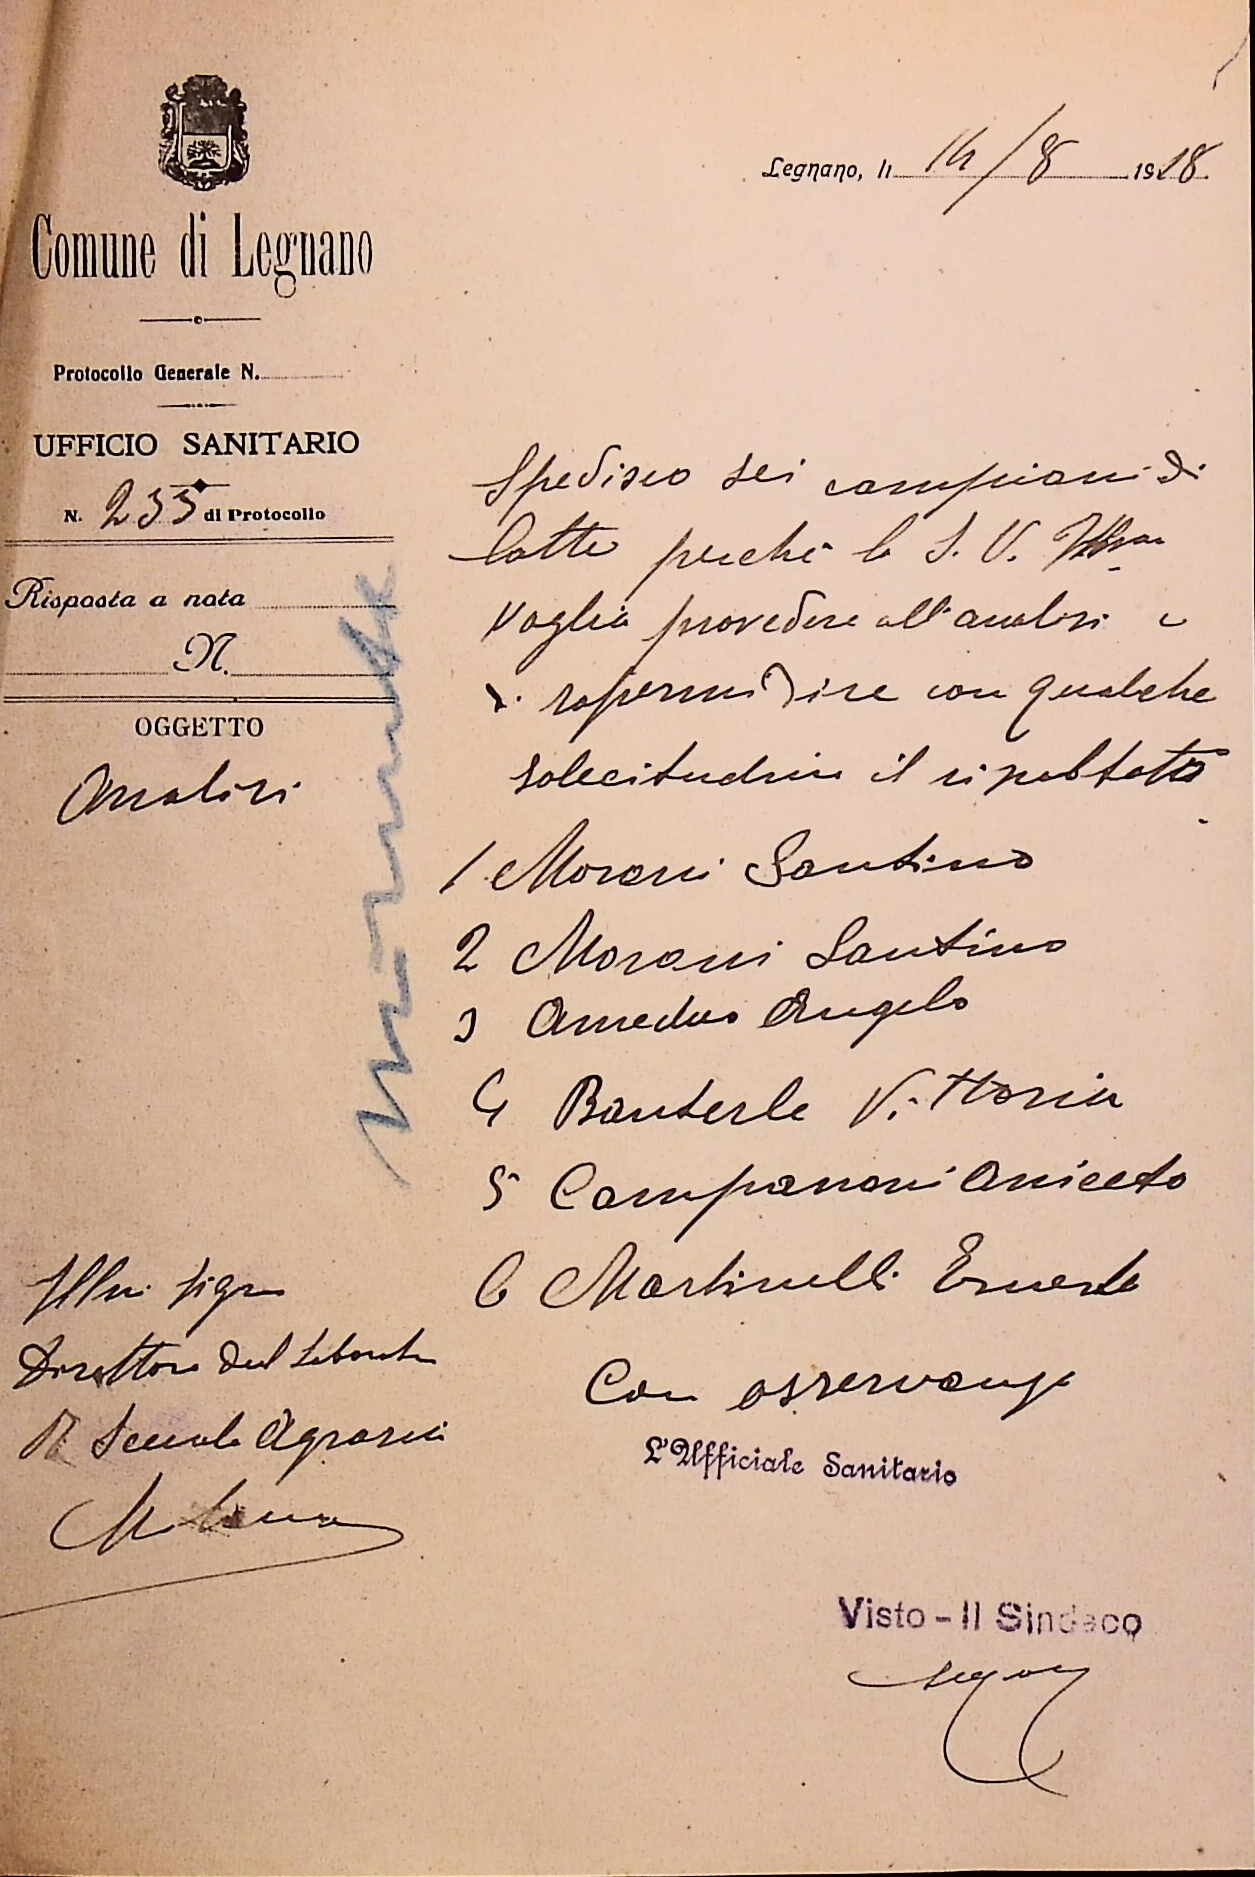 Comune di Legnano
Protocollo Generale N.
UFFICIO SANITARIO
N. 233 di Protocollo
Risposta a nota
N.
OGGETTO
Analisi
minuta
Legnano, li 14/8 1918.
Spedisco sei campioni di
latte perchè la S. V. Ill.ma
voglia provedere all'analisi e
di rispermidire con qualche
solecitudine il risultato
1 Morani Santino
2 Morani Santino
3 Amedeo Angelo
4 Banterle Vittoria
5 Campanoni Aniceto
6 Martinelli Ernesto
Con osservanza
L'Ufficiale Sanitario
Visto - Il Sindaco
Illmi sigr
Direttore del Laborat
R Scuola Agraria
Milano